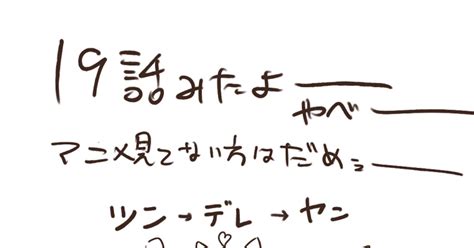 19話みたよ――
やべ――
アニメ見てない方はだめ――
ツン→デレ→ヤン